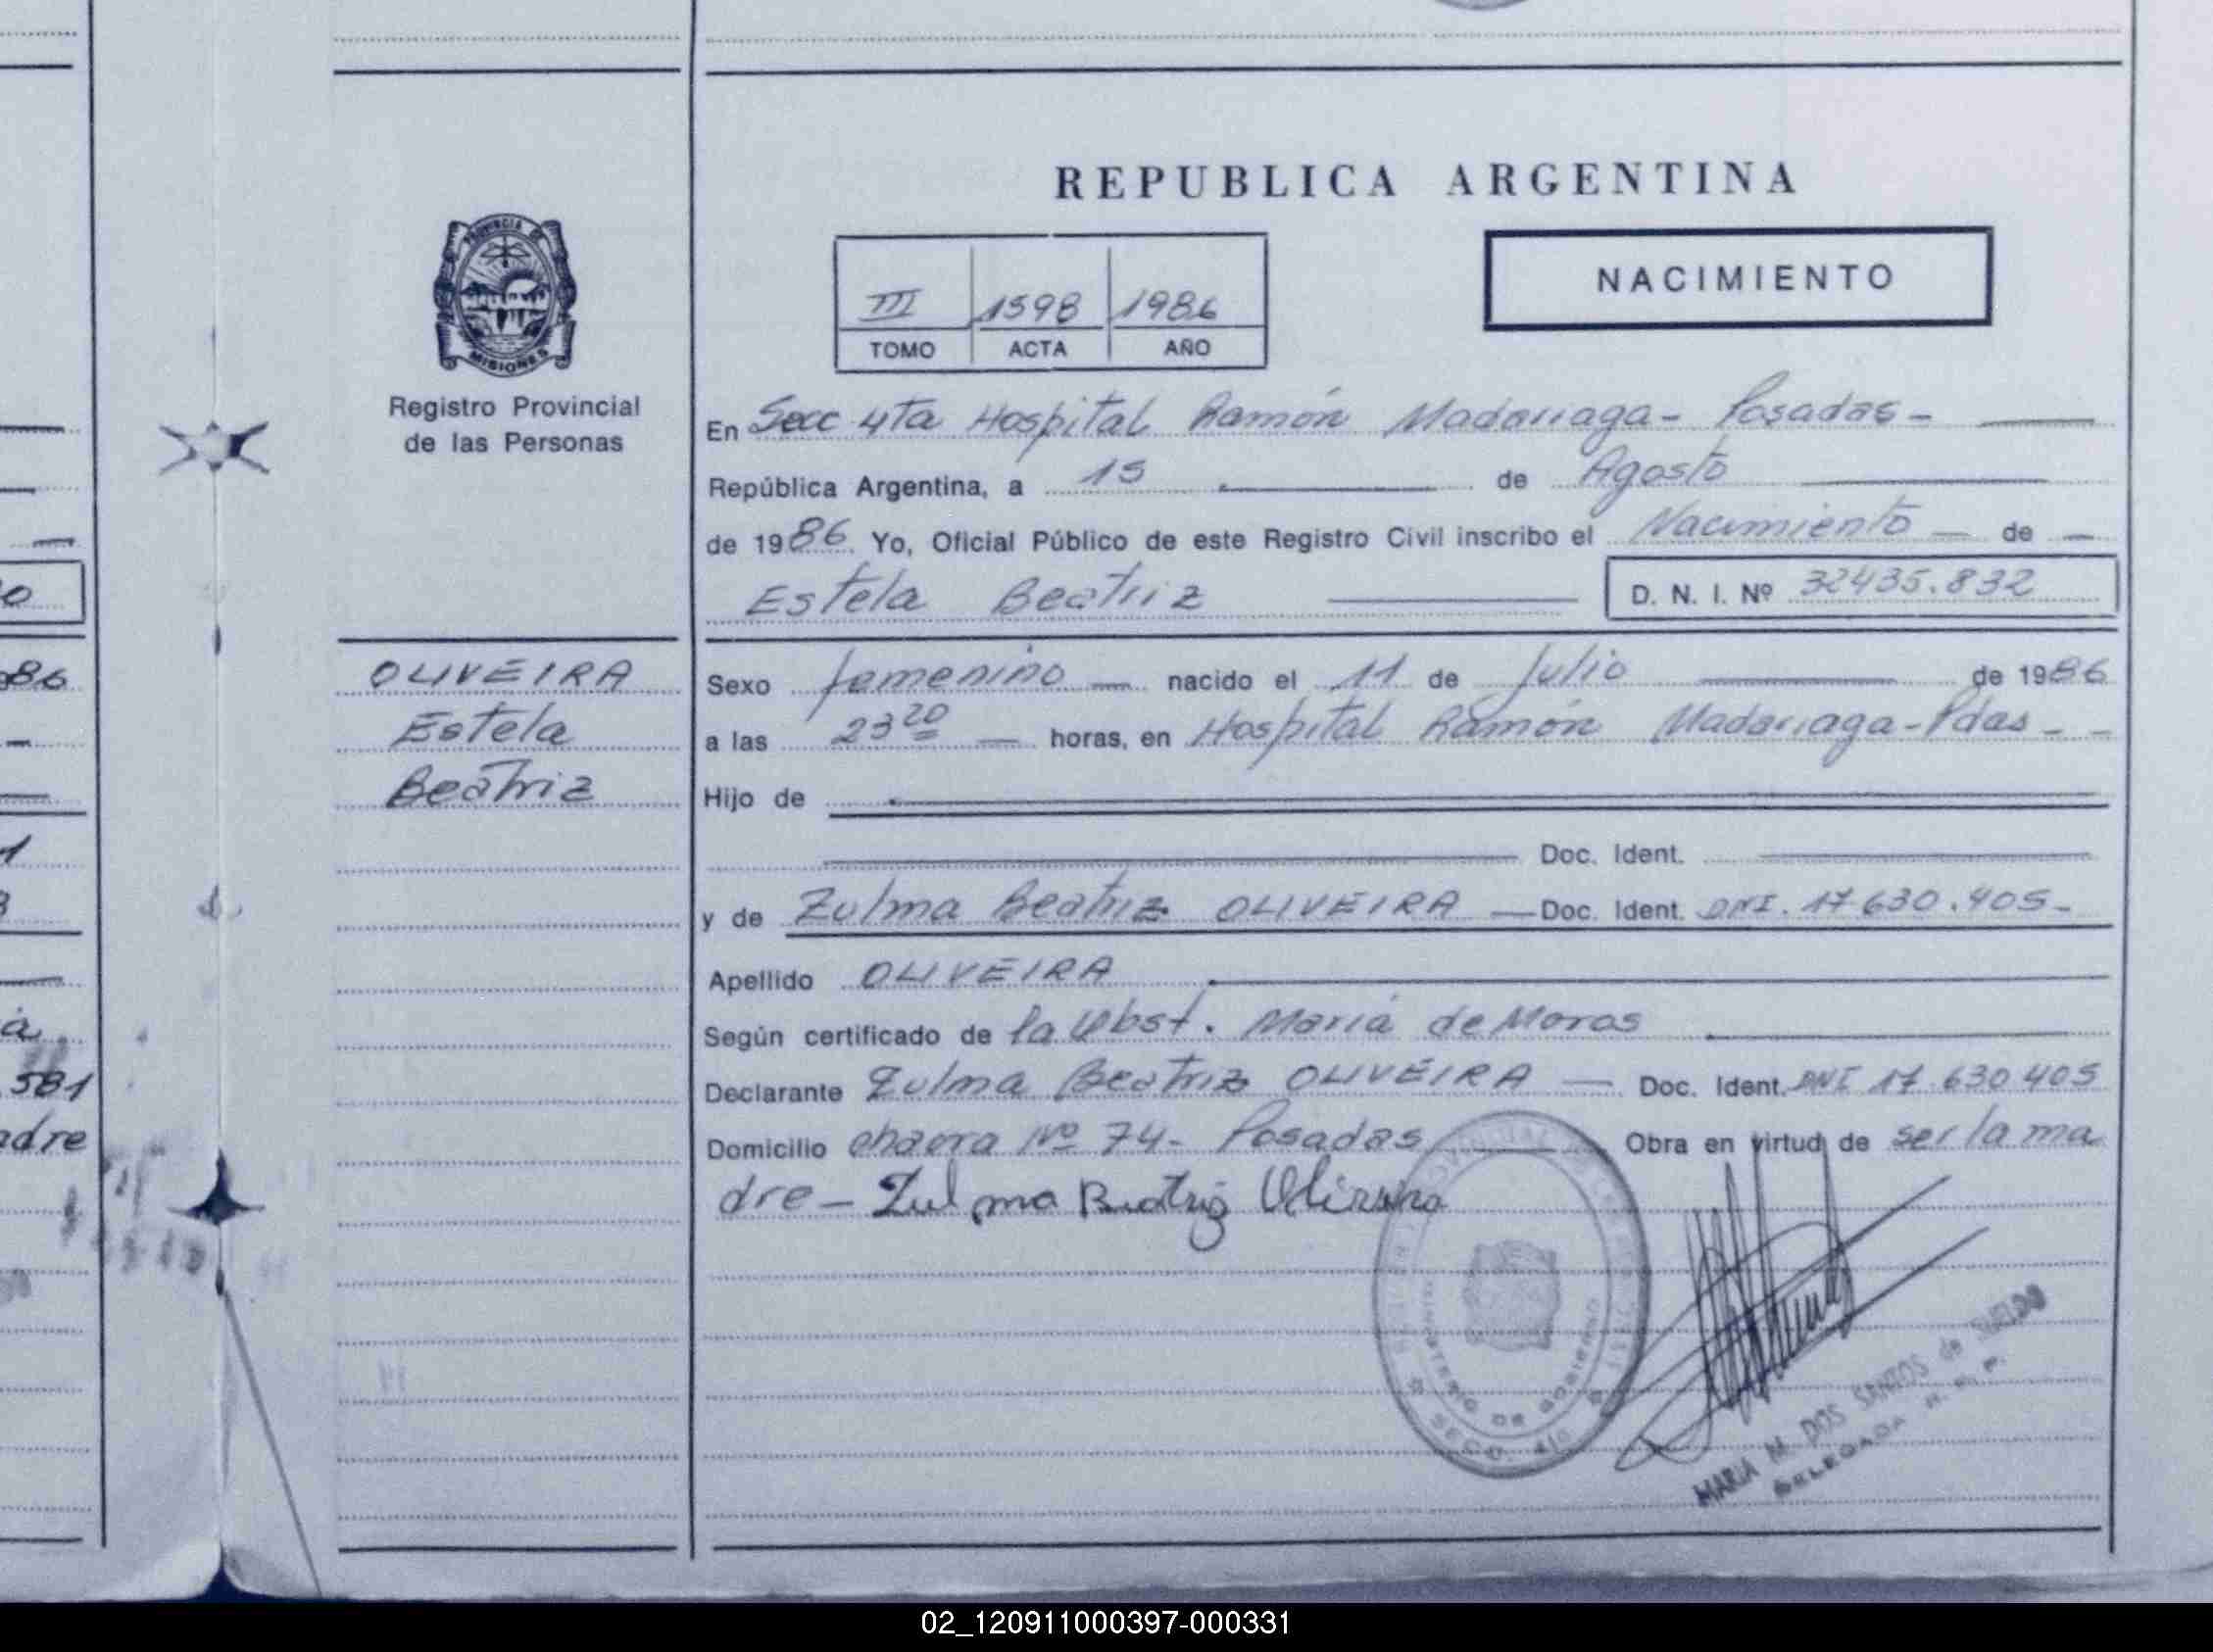 0
986
1
3
a
581
adre
PROVINCIA DE
MISIONES
Registro Provincial
de las Personas
OLIVEIRA
Estela
Beatriz
REPUBLICA ARGENTINA
III 1598 1986
TOMO ACTA AÑO
NACIMIENTO
En Secc 4ta Hospital Ramón Madariaga - Posadas -
República Argentina, a 15 de Agosto
de 1986. Yo, Oficial Público de este Registro Civil inscribo el Nacimiento — de —
Estela Beatriz — D. N. I. Nº 32435.832
Sexo femenino — nacido el 11 de Julio de 1986
a las 23 20 — horas, en Hospital Ramón Madariaga - Pdas - -
Hijo de
Doc. Ident.
y de Zulma Beatriz OLIVEIRA — Doc. Ident. DNI. 17.630.405-
Apellido OLIVEIRA
Según certificado de la Obst. María de Moros
Declarante Zulma Beatriz OLIVEIRA — Doc. Ident. DNI 17.630 405
Domicilio chacra Nº 74 - Posadas — Obra en virtud de ser la ma
dre - Zulma Beatriz Oliveira
MINISTERIO DE GOBIERNO
SECC. 4ta
MARIA M. DOS SANTOS de SUELDO
DELEGADA R. P. P.
02_120911000397-000331